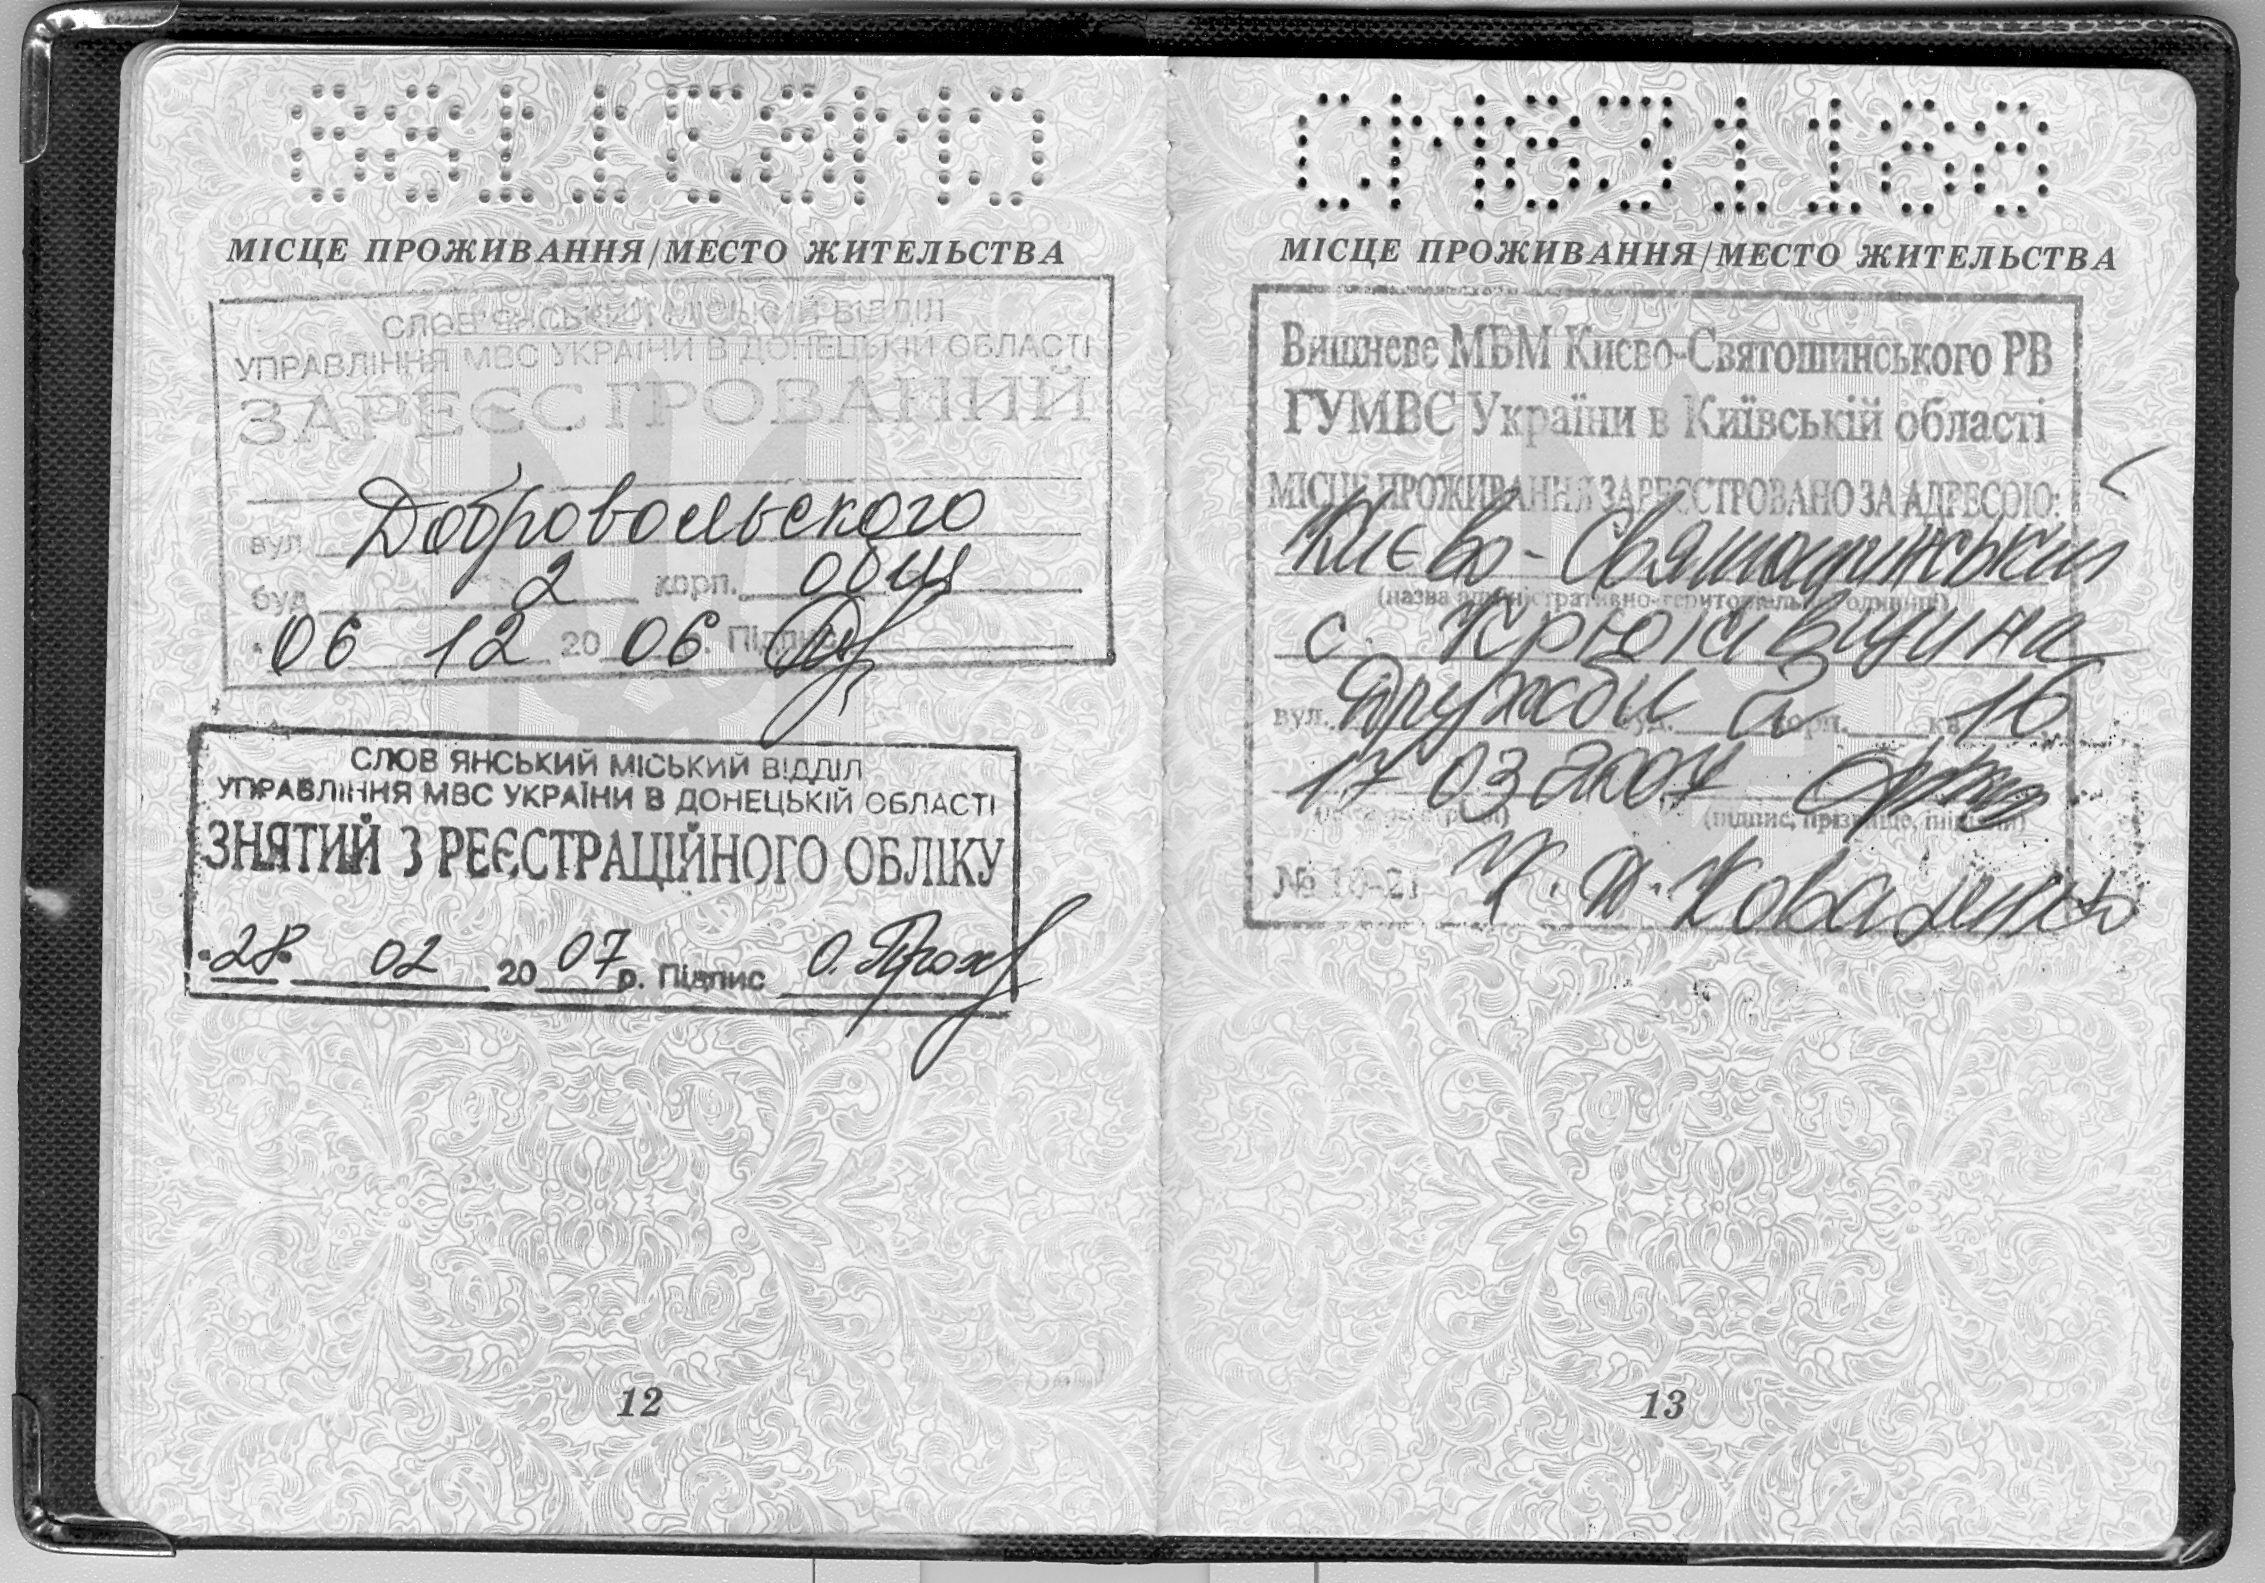 МІСЦЕ ПРОЖИВАННЯ/МЕСТО ЖИТЕЛЬСТВА
СЛОВ'ЯНСЬКИЙ МІСЬКИЙ ВІДДІЛ
УПРАВЛІННЯ МВС УКРАЇНИ В ДОНЕЦЬКІЙ ОБЛАСТІ
ЗАРЕЄСТРОВАНИЙ
вул Добровольского
буд 2 корп. общ
06 12 2006. Підпис
СЛОВ ЯНСЬКИЙ МІСЬКИЙ ВІДДІЛ
УПРАВЛІННЯ МВС УКРАЇНИ В ДОНЕЦЬКІЙ ОБЛАСТІ
ЗНЯТИЙ З РЕЄСТРАЦІЙНОГО ОБЛІКУ
28 02 2007р. Підпис О. Прох
12
СМ831168
МІСЦЕ ПРОЖИВАННЯ/МЕСТО ЖИТЕЛЬСТВА
Вишневе МВМ Києво-Святошинського РВ
ГУМВС України в Київській області
МІСЦЕ ПРОЖИВАННЯ ЗАРЕЄСТРОВАНО ЗА АДРЕСОЮ:
Києво-Святошинський
(назва адміністративно-територіальної одиниці)
с. Крюківщина
вул. Дружби буд. 2 корп. кв 16
17 03 2007
(підпис, прізвище, ініціали)
№ 10-21 Коваленко
13